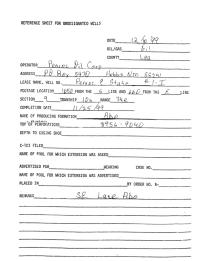 REFERENCE SHEET FOR UNDESIGNATED WELLS
DATE 12/6/99
OIL/GAS Oil
COUNTY Lea
OPERATOR Oil Corp
ADDRESS PO Box 5970 Hobbs NM 88241
LEASE NAME, WELL NO. State #1-I
FOOTAGE LOCATION FROM THE S LINE AND 660 FROM THE E LINE
SECTION 9 TOWNSHIP 10s RANGE 34e
COMPLETION DATE 11/25/99
NAME OF PRODUCING FORMATION Abo
TOP OF PERFORATIONS 8956-9040
DEPTH TO CASING SHOE
C-123 FILED
NAME OF POOL FOR WHICH EXTENSION WAS ASKED
ADVERTISED FOR HEARING CASE NO.
NAME OF POOL FOR WHICH EXTENSION WAS ADVERTISED
PLACED IN BY ORDER NO. R-
REMARKS SE Lane Abo